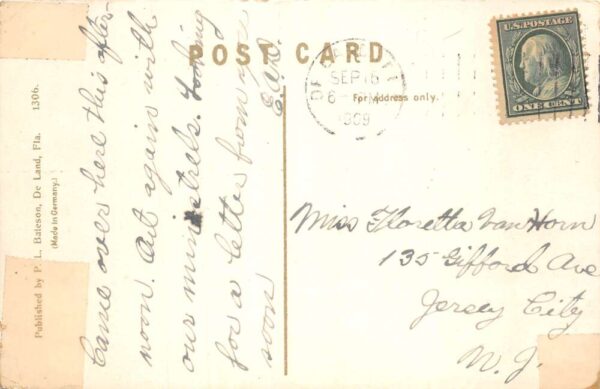 POST CARD
For address only.
SEP 16
6-
1909
U.S. POSTAGE
ONE CENT
Published by P. L. Bateson, De Land, Fla. 1306.
(Made in Germany.)
Came over here this after-
noon. Out again with
our minstrels. Looking
for a letter from you
soon
E.A.D.
Miss Floretta Van Horn
135 Gifford Ave
Jersey City
N. J.